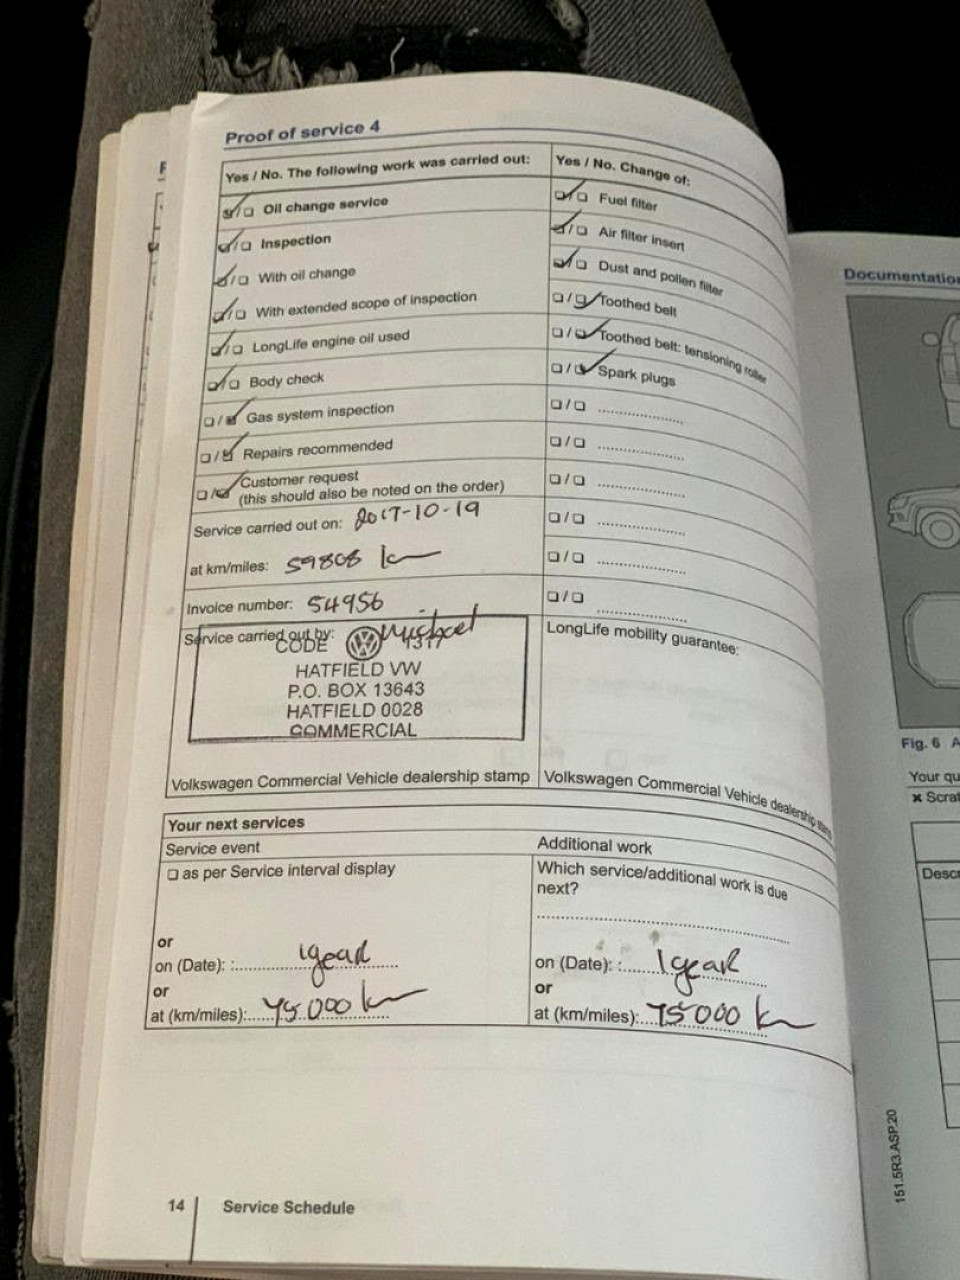 Proof of service 4
Yes / No. The following work was carried out:
☑/☐ Oil change service
☑/☐ Inspection
☑/☐ With oil change
☑/☐ With extended scope of inspection
☑/☐ LongLife engine oil used
☑/☐ Body check
☐/☑ Gas system inspection
☐/☑ Repairs recommended
☐/☑ Customer request
(this should also be noted on the order)
Service carried out on: 2017-10-19
at km/miles: 59808 km
Invoice number: 54956
Service carried out by: Michael
CODE 1317
HATFIELD VW
P.O. BOX 13643
HATFIELD 0028
COMMERCIAL
Volkswagen Commercial Vehicle dealership stamp
Yes / No. Change of:
☑/☐ Fuel filter
☑/☐ Air filter insert
☑/☐ Dust and pollen filter
☐/☑ Toothed belt
☐/☑ Toothed belt: tensioning roller
☐/☑ Spark plugs
☐/☐ ....................
☐/☐ ....................
☐/☐ ....................
☐/☐ ....................
☐/☐ ....................
☐/☐ ....................
LongLife mobility guarantee:
Volkswagen Commercial Vehicle dealership stamp
Your next services
Service event
☐ as per Service interval display
or
on (Date): : 1 year
or
at (km/miles): 75 000 km
Additional work
Which service/additional work is due
next?
on (Date): : 1 year
or
at (km/miles): 75 000 km
14 Service Schedule
Documentation
Fig. 6 A
Your qu
× Scrat
Descr
151.5R3.ASP.20